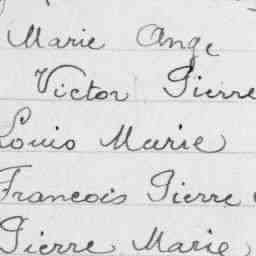 Marie Ange
Victor Pierre
Louis Marie
Francois Pierre
Pierre Marie